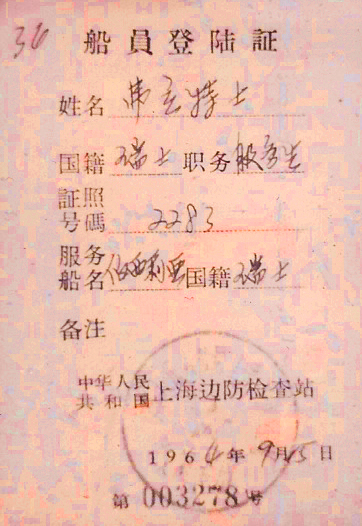 36
船員登陆証
姓名 弗立特士
国籍 瑞士 职务 服务生
証照号碼 2283
服务船名 伯西利亚 国籍 瑞士
备注
中华人民共和国 上海边防检查站
1964年9月15日
第 003278 号